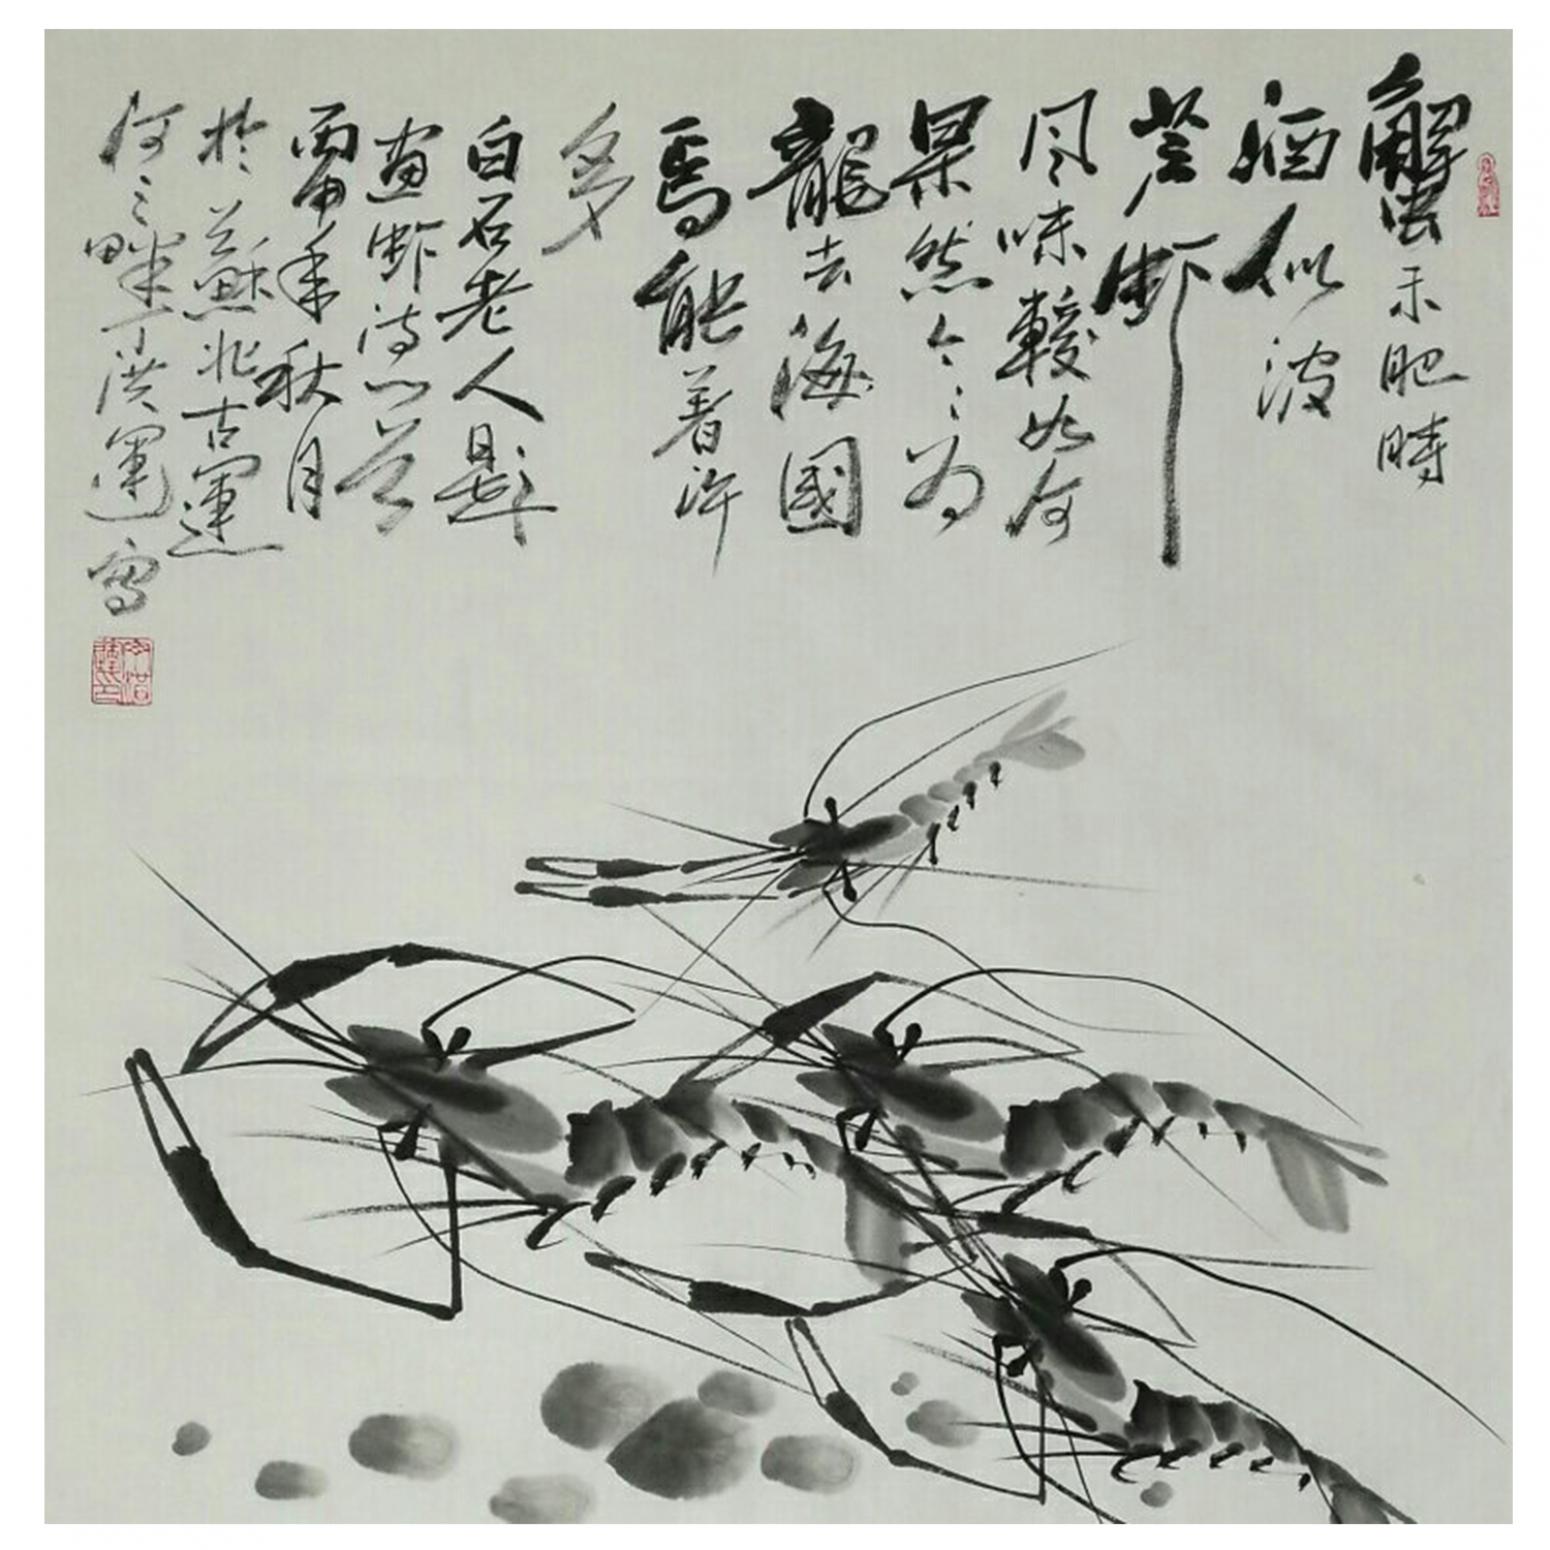 蟹禾肥時
酒似波
登蝦
風味較如何
果然个〻為
龍去海國
焉能著許
多
白石老人題
畫蝦詩一首
丙申年秋月
於蘇北古運
河之畔丁洪運寫